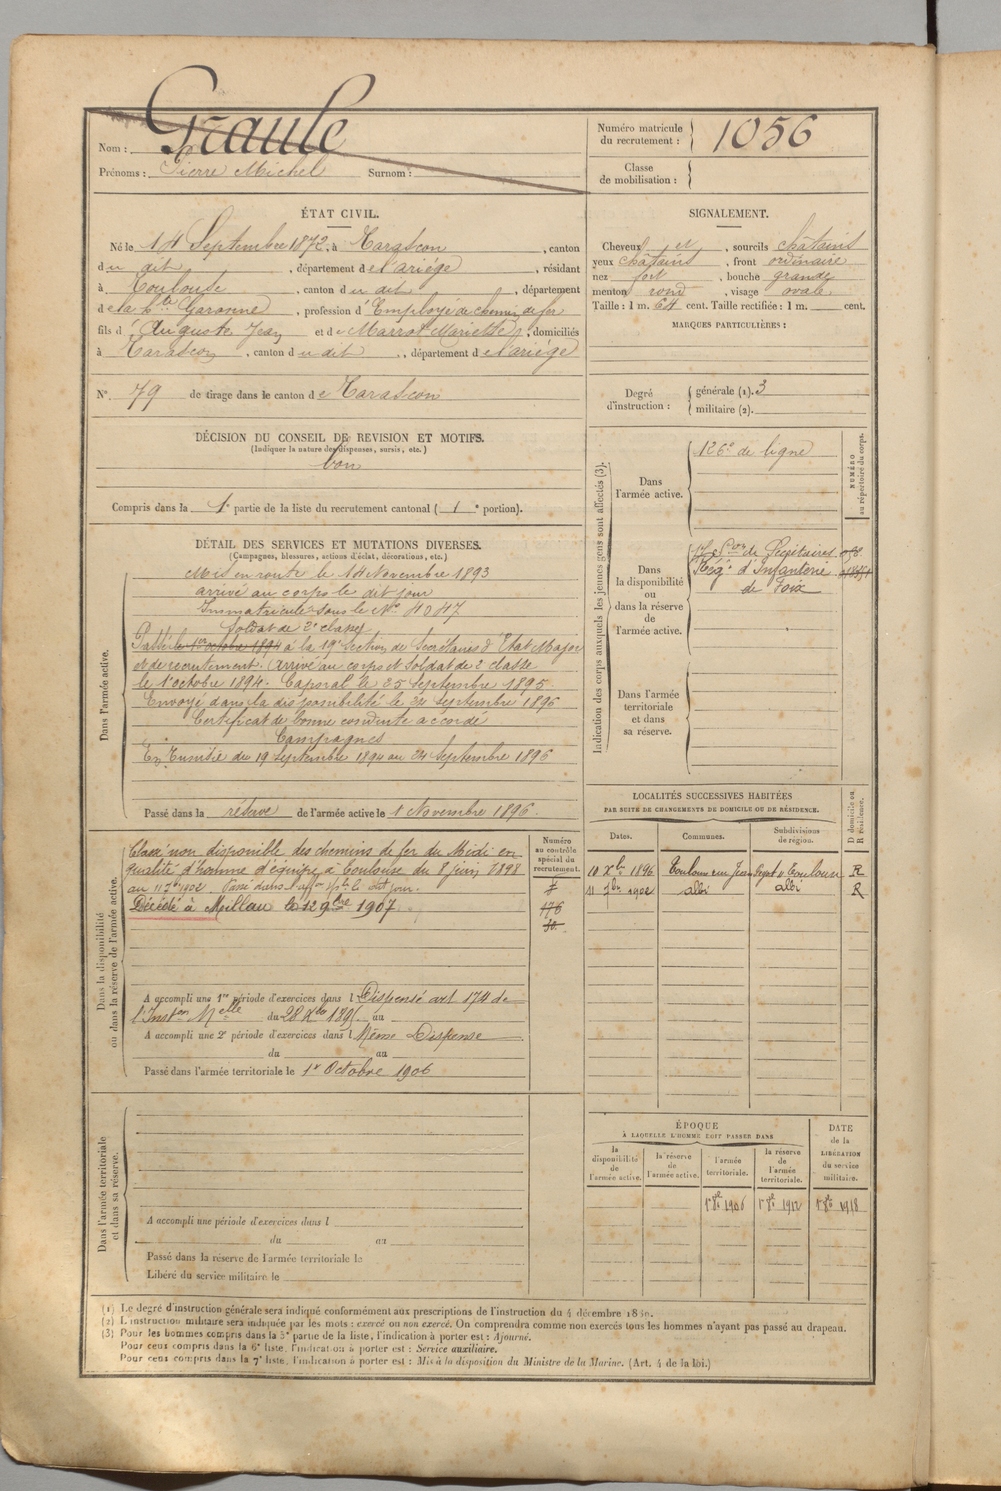 Nom : Graule
Prénoms : Pierre Michel Surnom :
Numéro matricule du recrutement : 1056
Classe de mobilisation :
ÉTAT CIVIL.
Né le 14 Septembre 1872, à Tarascon, canton
du dit, département de l'ariège, résidant
à Toulouse, canton du dit, département
de la hte Garonne, profession d'Employé de chemin de fer
fils d'Auguste Jean et de Marrot Mariette, domiciliés
à Tarascon, canton du dit, département de l'ariège
N° 79 de tirage dans le canton de Tarascon
SIGNALEMENT.
Cheveux et, sourcils châtains
yeux châtains, front ordinaire
nez fort, bouche grande
menton rond, visage ovale
Taille : 1 m. 64 cent. Taille rectifiée : 1 m. cent.
MARQUES PARTICULIÈRES :
Degré d'instruction : générale (1). 3
militaire (2).
DÉCISION DU CONSEIL DE REVISION ET MOTIFS.
(Indiquer la nature des dispenses, sursis, etc.)
bon
Compris dans la 1e partie de la liste du recrutement cantonal ( 1 e portion).
DÉTAIL DES SERVICES ET MUTATIONS DIVERSES.
(Campagnes, blessures, actions d'éclat, décorations, etc.)
Dans l'armée active.
Mis en route le 14 Novembre 1893
arrivé au corps le dit jour
Immatriculé sous le No 4047
Soldat de 2e classe
Passé le 1er octobre 1894 à la 19e Section de Secrétaires d'Etat Major
et de recrutement. Arrivé au corps et Soldat de 2e classe
le 1 octobre 1894. Caporal le 25 Septembre 1895
Envoyé dans la disponibilité le 24 Septembre 1896
Certificat de bonne conduite accordé
Campagnes
En Tunisie du 19 Septembre 1894 au 24 Septembre 1896
Passé dans la réserve de l'armée active le 1 Novembre 1896.
Indication des corps auxquels les jeunes gens sont affectés (3).
NUMÉRO au répertoire du corps.
Dans l'armée active.
126e de ligne
Dans la disponibilité ou dans la réserve de l'armée active.
Son de Secrétaires
Régt d'Infanterie
de Foix
Dans l'armée territoriale et dans sa réserve.
LOCALITÉS SUCCESSIVES HABITÉES
PAR SUITE DE CHANGEMENTS DE DOMICILE OU DE RÉSIDENCE.
D domicile ou R résidence.
Dates. Communes. Subdivisions de région.
10 Xbre 1896 Toulouse Toulouse R
11 9bre 1902 albi albi R
Dans la disponibilité ou dans la réserve de l'armée active.
Numéro au contrôle spécial du recrutement.
Classé non disponible des chemins de fer du Midi en
qualité d'homme d'équipe à Toulouse du 8 juin 1898
Décédé à Meillau le 12 9bre 1907
176
A accompli une 1re période d'exercices dans l Dispensé art. 174 de
l'Inston Melle du 28 Xbre 1895 au
A accompli une 2e période d'exercices dans l Même Dispense
du au
Passé dans l'armée territoriale le 1er Octobre 1906
Dans l'armée territoriale et dans sa réserve.
A accompli une période d'exercices dans l
du au
Passé dans la réserve de l'armée territoriale le
Libéré du service militaire le
ÉPOQUE
À LAQUELLE L'HOMME DOIT PASSER DANS
DATE de la LIBÉRATION du service militaire.
la disponibilité de l'armée active. la réserve de l'armée active. l'armée territoriale. la réserve de l'armée territoriale.
1er 8bre 1906 1er 8bre 1912 1er 8bre 1918
(1) Le degré d'instruction générale sera indiqué conformément aux prescriptions de l'instruction du 4 décembre 1889.
(2) L'instruction militaire sera indiquée par les mots : exercé ou non exercé. On comprendra comme non exercés tous les hommes n'ayant pas passé au drapeau.
(3) Pour les hommes compris dans la 5e partie de la liste, l'indication à porter est : Ajourné.
Pour ceux compris dans la 6e liste, l'indication à porter est : Service auxiliaire.
Pour ceux compris dans la 7e liste, l'indication à porter est : Mis à la disposition du Ministre de la Marine. (Art. 4 de la loi.)